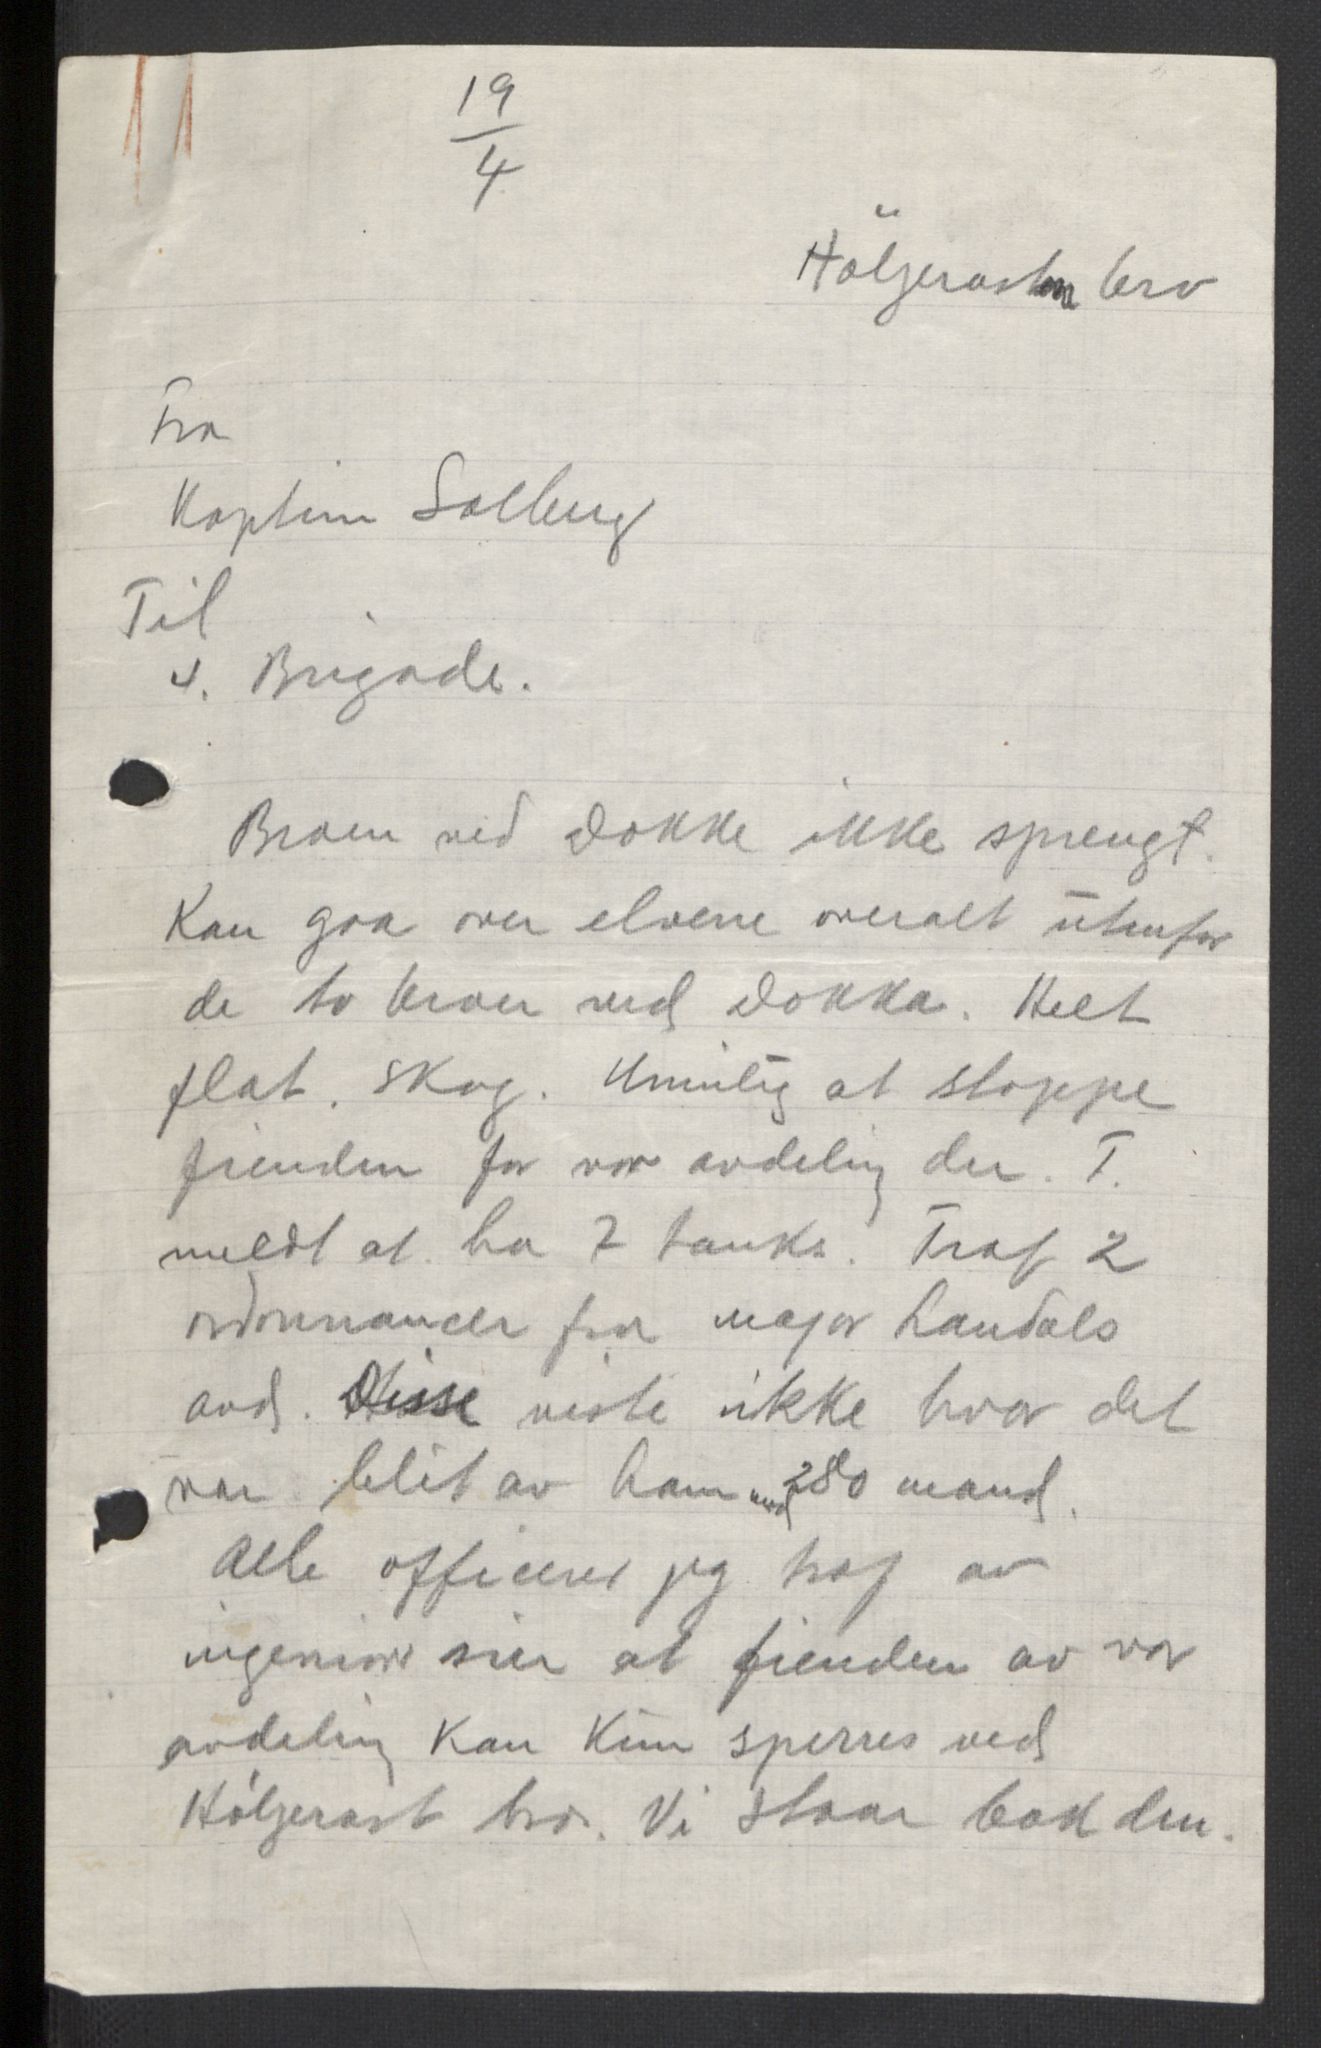 19
4
Höljerast bro
Fra
Kaptein Solberg
Til
4. Brigade.
Broen ved Dokke ikke sprengt.
Kan gaa over elvene overalt utenfor
de to broer ved Dokka. Helt
flat. Skog. Umulig at stoppe
fienden for vor avdeling der. T.
meldt at ha 7 tanks. Traf 2
ordonnancer fra major Landals
avd. Disse viste ikke hvor det
var blit av ham med 280 mand.
Alle officerer jeg traf av
ingeniør sier at fienden av vor
avdeling kan kun sperres ved
Höljerast bro. Vi staar bak den.